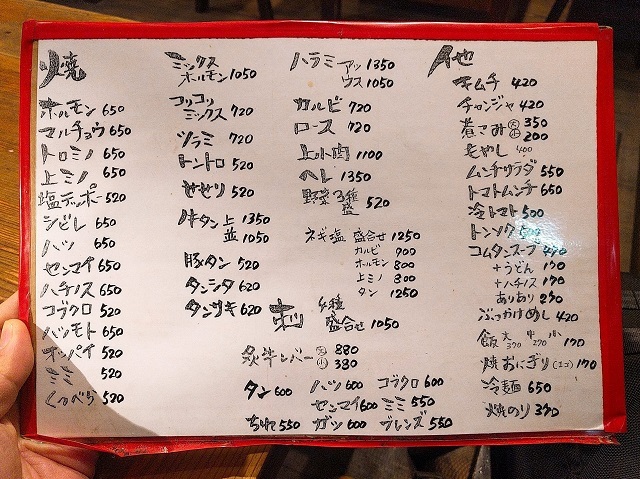 焼
ホルモン 650
マルチョウ 650
トロミノ 650
上ミノ 650
塩テッポー 520
シビレ 650
ハツ 650
センマイ 650
ハチノス 650
コブクロ 520
ハツモト 650
オッパイ 520
ミミ 520
くつべら 520
ミックス
ホルモン 1050
コリコリ
ミックス 720
ツラミ 720
トントロ 520
せせり 520
牛タン 上 1350
並 1050
豚タン 520
タンシタ 620
タンサキ 620
ハラミ アツ 1350
ウス 1050
カルビ 720
ロース 720
上小肉 1100
ヘレ 1350
野菜3種
盛 520
ネギ塩 盛合せ 1250
カルビ 900
ホルモン 800
上ミノ 800
タン 1250
4種
盛合せ 1050
炙牛レバー 大 880
小 380
タン 600 ハツ 600 コブクロ 600
センマイ 600 ミミ 550
ちれ 550 ガツ 600 ブレンズ 550
他
キムチ 420
チャンジャ 420
煮こみ 大 350
小 200
もやし 400
ムンチサラダ 550
トマトムンチ 650
冷トマト 500
トンソク
コムタンスープ
+うどん 170
+ハチノス 170
ありあり 270
ぶっかけめし 420
飯 大 370 中 270 小 170
焼おにぎり(1コ) 170
冷麺 650
焼のり 370